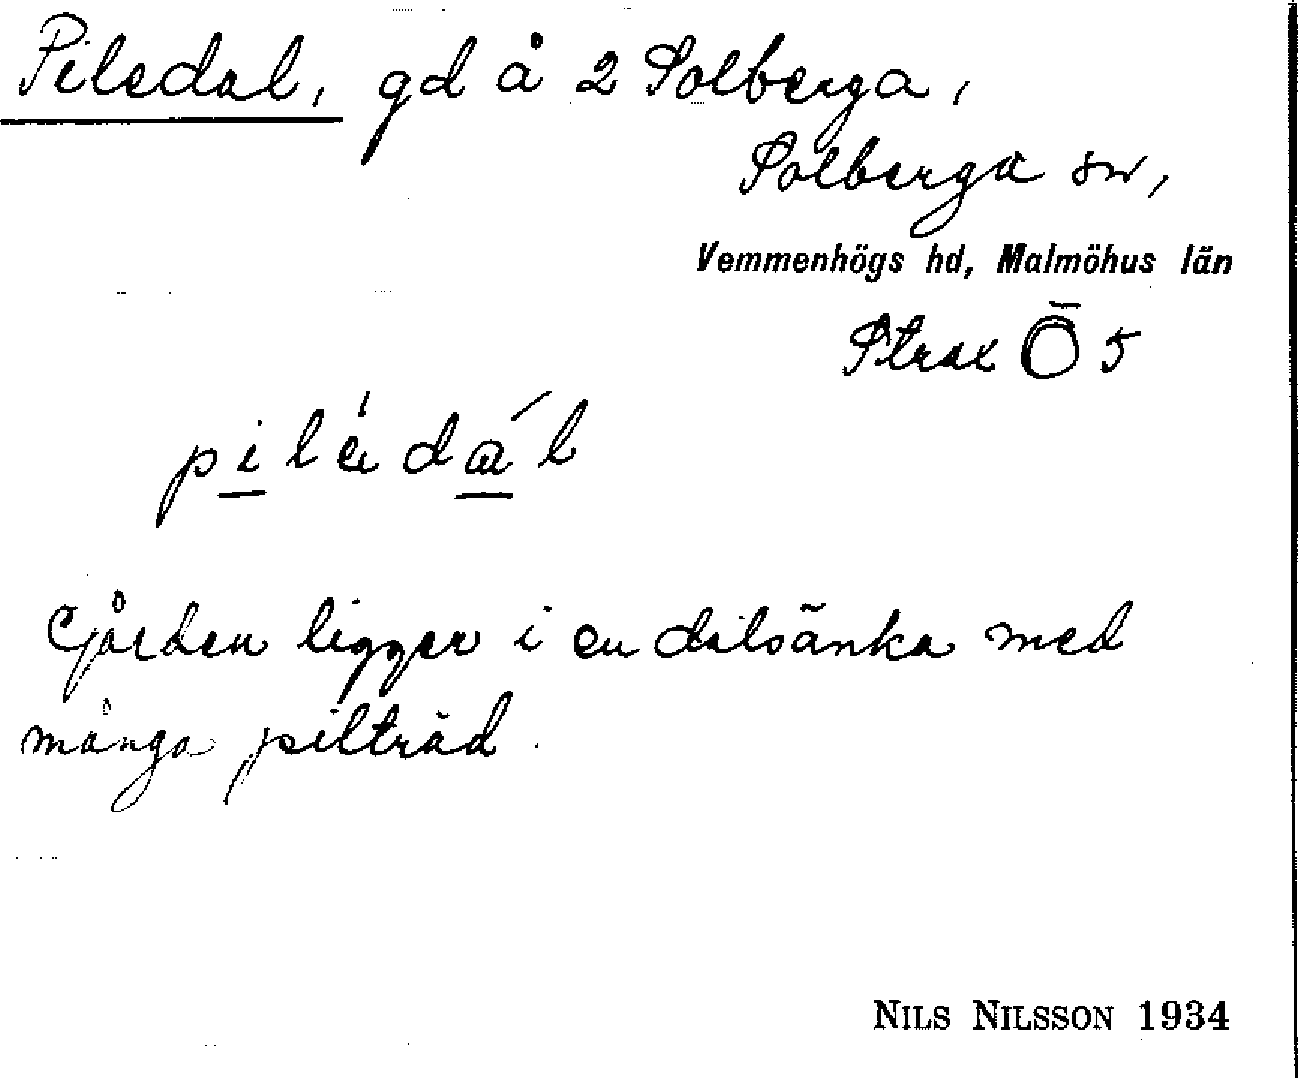 Piledal, gd å 2 Solberga,
Solberga sn,
Vemmenhögs hd, Malmöhus län
Strax Ö 5
piledál
Gården ligger i en dalsänka med
många pilträd.
NILS NILSSON 1934